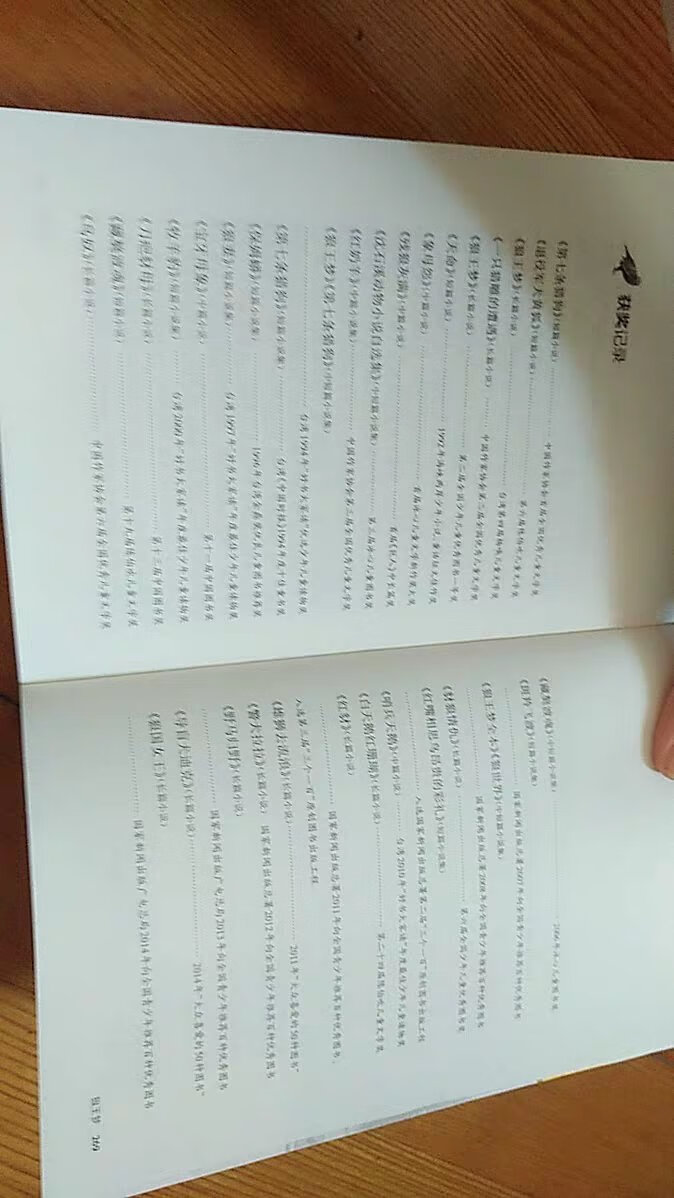 获奖记录
《第七条猎狗》(短篇小说)………中国作家协会首届全国优秀儿童文学奖
《退役军犬黄狐》(短篇小说)
《狼王梦》(长篇小说)………第六届陈伯吹儿童文学奖
《一只猎雕的遭遇》(长篇小说)………台湾第四届杨唤儿童文学奖
《狼王梦》(长篇小说)………中国作家协会第二届全国优秀儿童文学奖
《天命》(短篇小说)………第二届全国少年儿童优秀图书一等奖
《象母怨》(中篇小说)………1992年海峡两岸少年小说、童话征文佳作奖
《残狼灰满》(中篇小说)………首届冰心儿童文学新作奖大奖
《沈石溪动物小说自选集》(中短篇小说集)………首届《巨人》中长篇奖
《红奶羊》(中短篇小说集)………第三届冰心儿童图书奖
《狼王梦》《第七条猎狗》(中短篇小说集)………中国作家协会第三届全国优秀儿童文学奖
………台湾1994年“好书大家读”优选少年儿童读物奖
《第七条猎狗》(短篇小说集)………台湾《中国时报》1994年度十佳童书奖
《保姆蟒》(短篇小说集)………1996年台湾金鼎奖优良儿童图书推荐奖
《狼妻》(短篇小说集)………台湾1997年“好书大家读”年度最佳少年儿童读物奖
《宝牙母象》(中篇小说)………第十一届中国图书奖
《牧羊豹》(中短篇小说集)………台湾2000年“好书大家读”年度最佳少年儿童读物奖
《刀疤豺母》(长篇小说)………第十三届中国图书奖
《藏獒渡魂》(短篇小说)………第十九届陈伯吹儿童文学奖
《鸟奴》(长篇小说)………中国作家协会第六届全国优秀儿童文学奖
《藏獒渡魂》(中短篇小说集)………2006年冰心儿童图书奖
《斑羚飞渡》(短篇小说集)
………国家新闻出版总署2007年向全国青少年推荐百种优秀图书
《狼王梦全本》《狼世界》(中短篇小说集)
………国家新闻出版总署2008年向全国青少年推荐百种优秀图书
《豺狼情仇》(长篇小说)………第六届全国少年儿童优秀图书奖
《红嘴相思鸟昂贵的彩礼》(短篇小说集)
………入选国家新闻出版总署第二届“三个一百”原创图书出版工程
《哨兵天鹅》(中篇小说)………台湾2010年“好书大家读”年度最佳少年儿童读物奖
《白天鹅红珊瑚》(长篇小说)………第二十四届陈伯吹儿童文学奖
《红豺》(长篇小说)
………国家新闻出版总署2011年向全国青少年推荐百种优秀图书,
入选第三届“三个一百”原创图书出版工程
《雄狮去流浪》(长篇小说)………2011年“大众喜爱的50种图书”
《智犬拉拉》(长篇小说) 国家新闻出版总署2012年向全国青少年推荐百种优秀图书
《野马归野》(长篇小说)
………国家新闻出版广电总局2013年向全国青少年推荐百种优秀图书
《导盲犬迪克》(长篇小说)………2014年“大众喜爱的50种图书”
《狼国女王》(长篇小说)
………国家新闻出版广电总局2014年向全国青少年推荐百种优秀图书
狼王梦 269